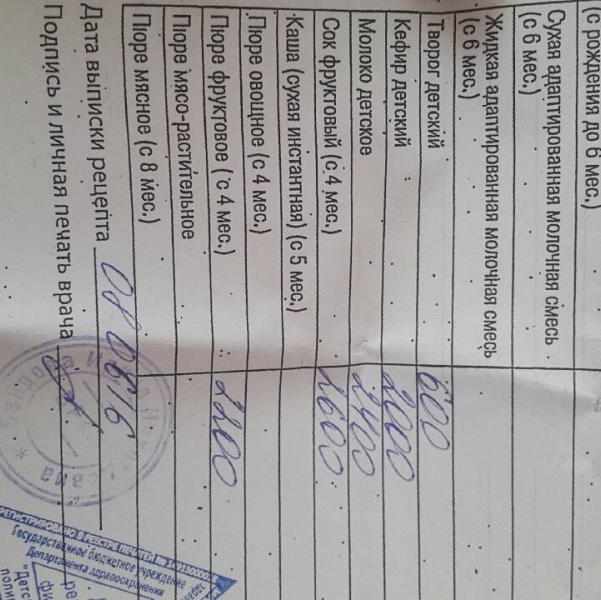 (с рождения до 6 мес.)
Сухая адаптированная молочная смесь
(с 6 мес.)
Жидкая адаптированная молочная смесь
(с 6 мес.)
Творог детский 600
Кефир детский 2000
Молоко детское 2400
Сок фруктовый (с 4 мес.) 2600
Каша (сухая инстантная) (с 5 мес.)
Пюре овощное (с 4 мес.)
Пюре фруктовое (с 4 мес.) 2200
Пюре мясо-растительное
Пюре мясное (с 8 мес.)
Дата выписки рецепта 08 06 16
Подпись и личная печать врача
РЕГИСТРИРОВАНО В РЕЕСТРЕ ПЕЧАТЕЙ №
Государственное бюджетное учреждение
Департамента здравоохранения